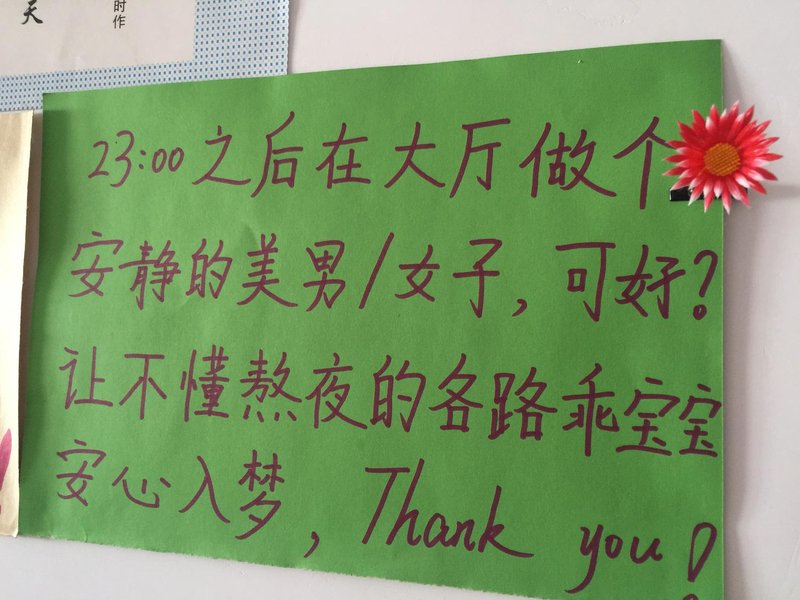 时作
天
23:00之后在大厅做个
安静的美男/女子，可好？
让不懂熬夜的各路乖宝宝
安心入梦，Thank you!